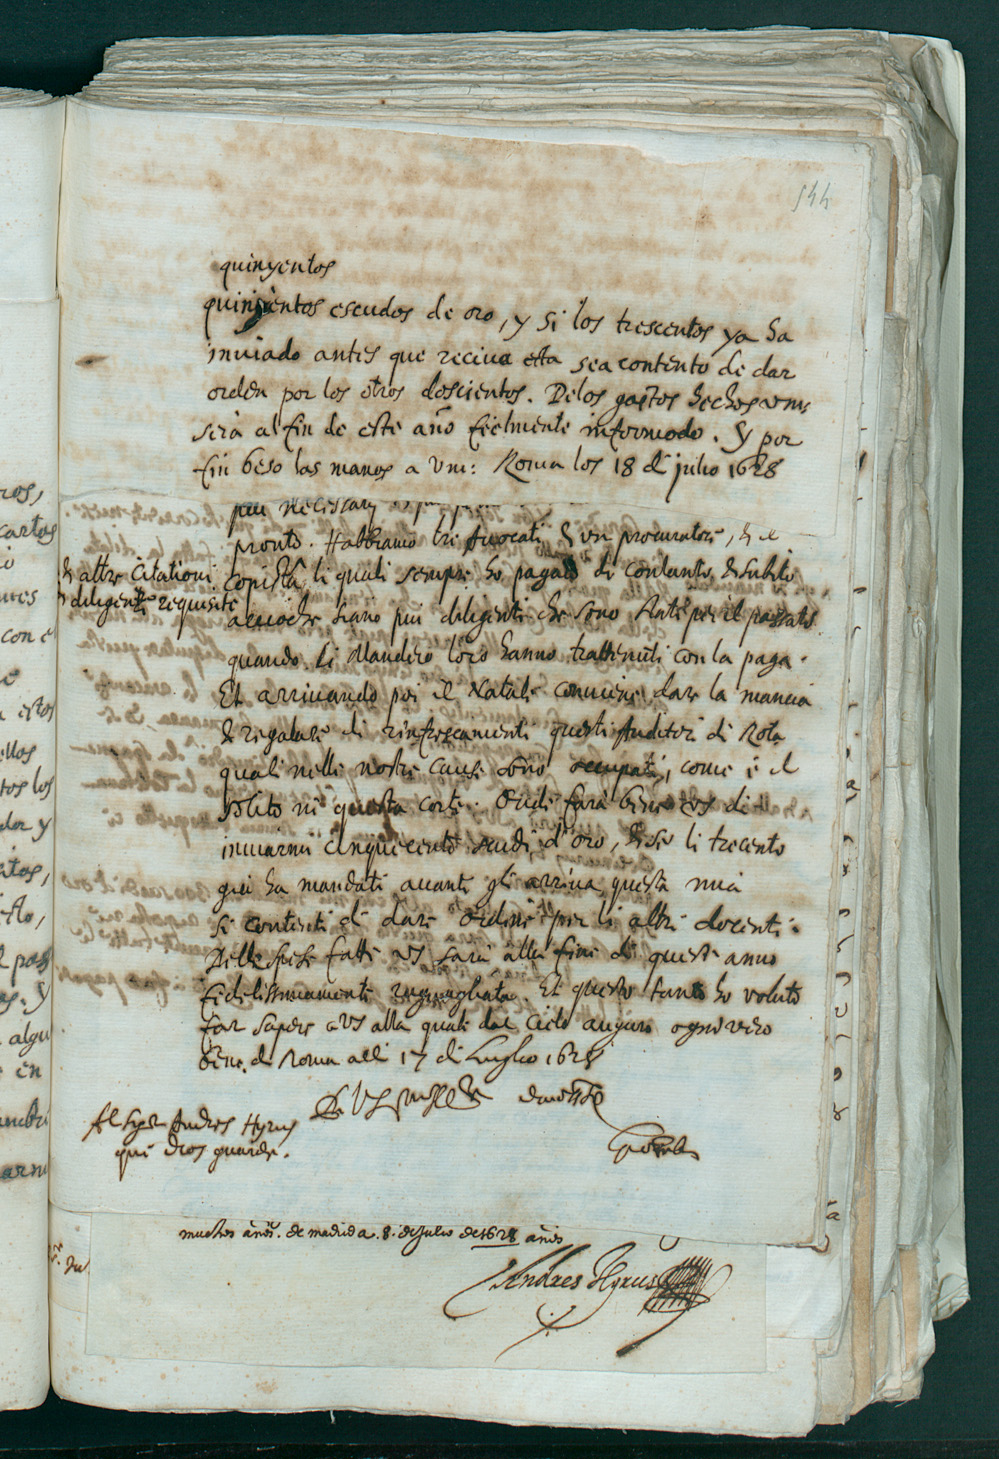 544
quinyentos
quinientos escudos de oro, y si los trescentos ya ha
inviado antes que reciva esta sea contento de dar
orden por los otros doscientos. Delos gastos hechos vm
serà al fin de este año fielmente informado. Y por
fin beso las manos a Vm: Roma los 18 di julio 1628
piu necessary
pronto. Habbiamo tre Avocati, & un procuratore, & il
& altre Citationi
& diligente requisite
copista, li quali sempre ho pagato di contanti, & subito
acioche siano piu diligenti che sono stati per il passato
quando li Mandero loro hanno trattenuti con la paga.
Et arrivando poi il Natale conviene dare la mancia
& regalare di rinfrescamenti questi Auditori di Rota
quali nelle nostre cause sono occupati, come è il
solito in questa corte. Onde farà bene VS di
inviarmi cinquecento scudi d'oro, & se li trecento
già ha mandati avanti gli arriva questa mia
si contenti di dare ordine per li altri docenti.
Delle spese fatte VS sarà alla fine di queste anno
fidelissimamente ragguagliata. Et questo tanto ho voluto
far sapere a VS alla quale dal Cielo auguro ogni vero
bene. di Roma alli 17 di Luglio 1628
Di VS
Al Sigr Andres Hyrus
que Dios guarde.
muchos años. de madrid a. 8. de Julio de 1628 años
Andres Hyrus
ros,
cartas
con e
estos
ellos
tos los
dor y
Y
algu
en